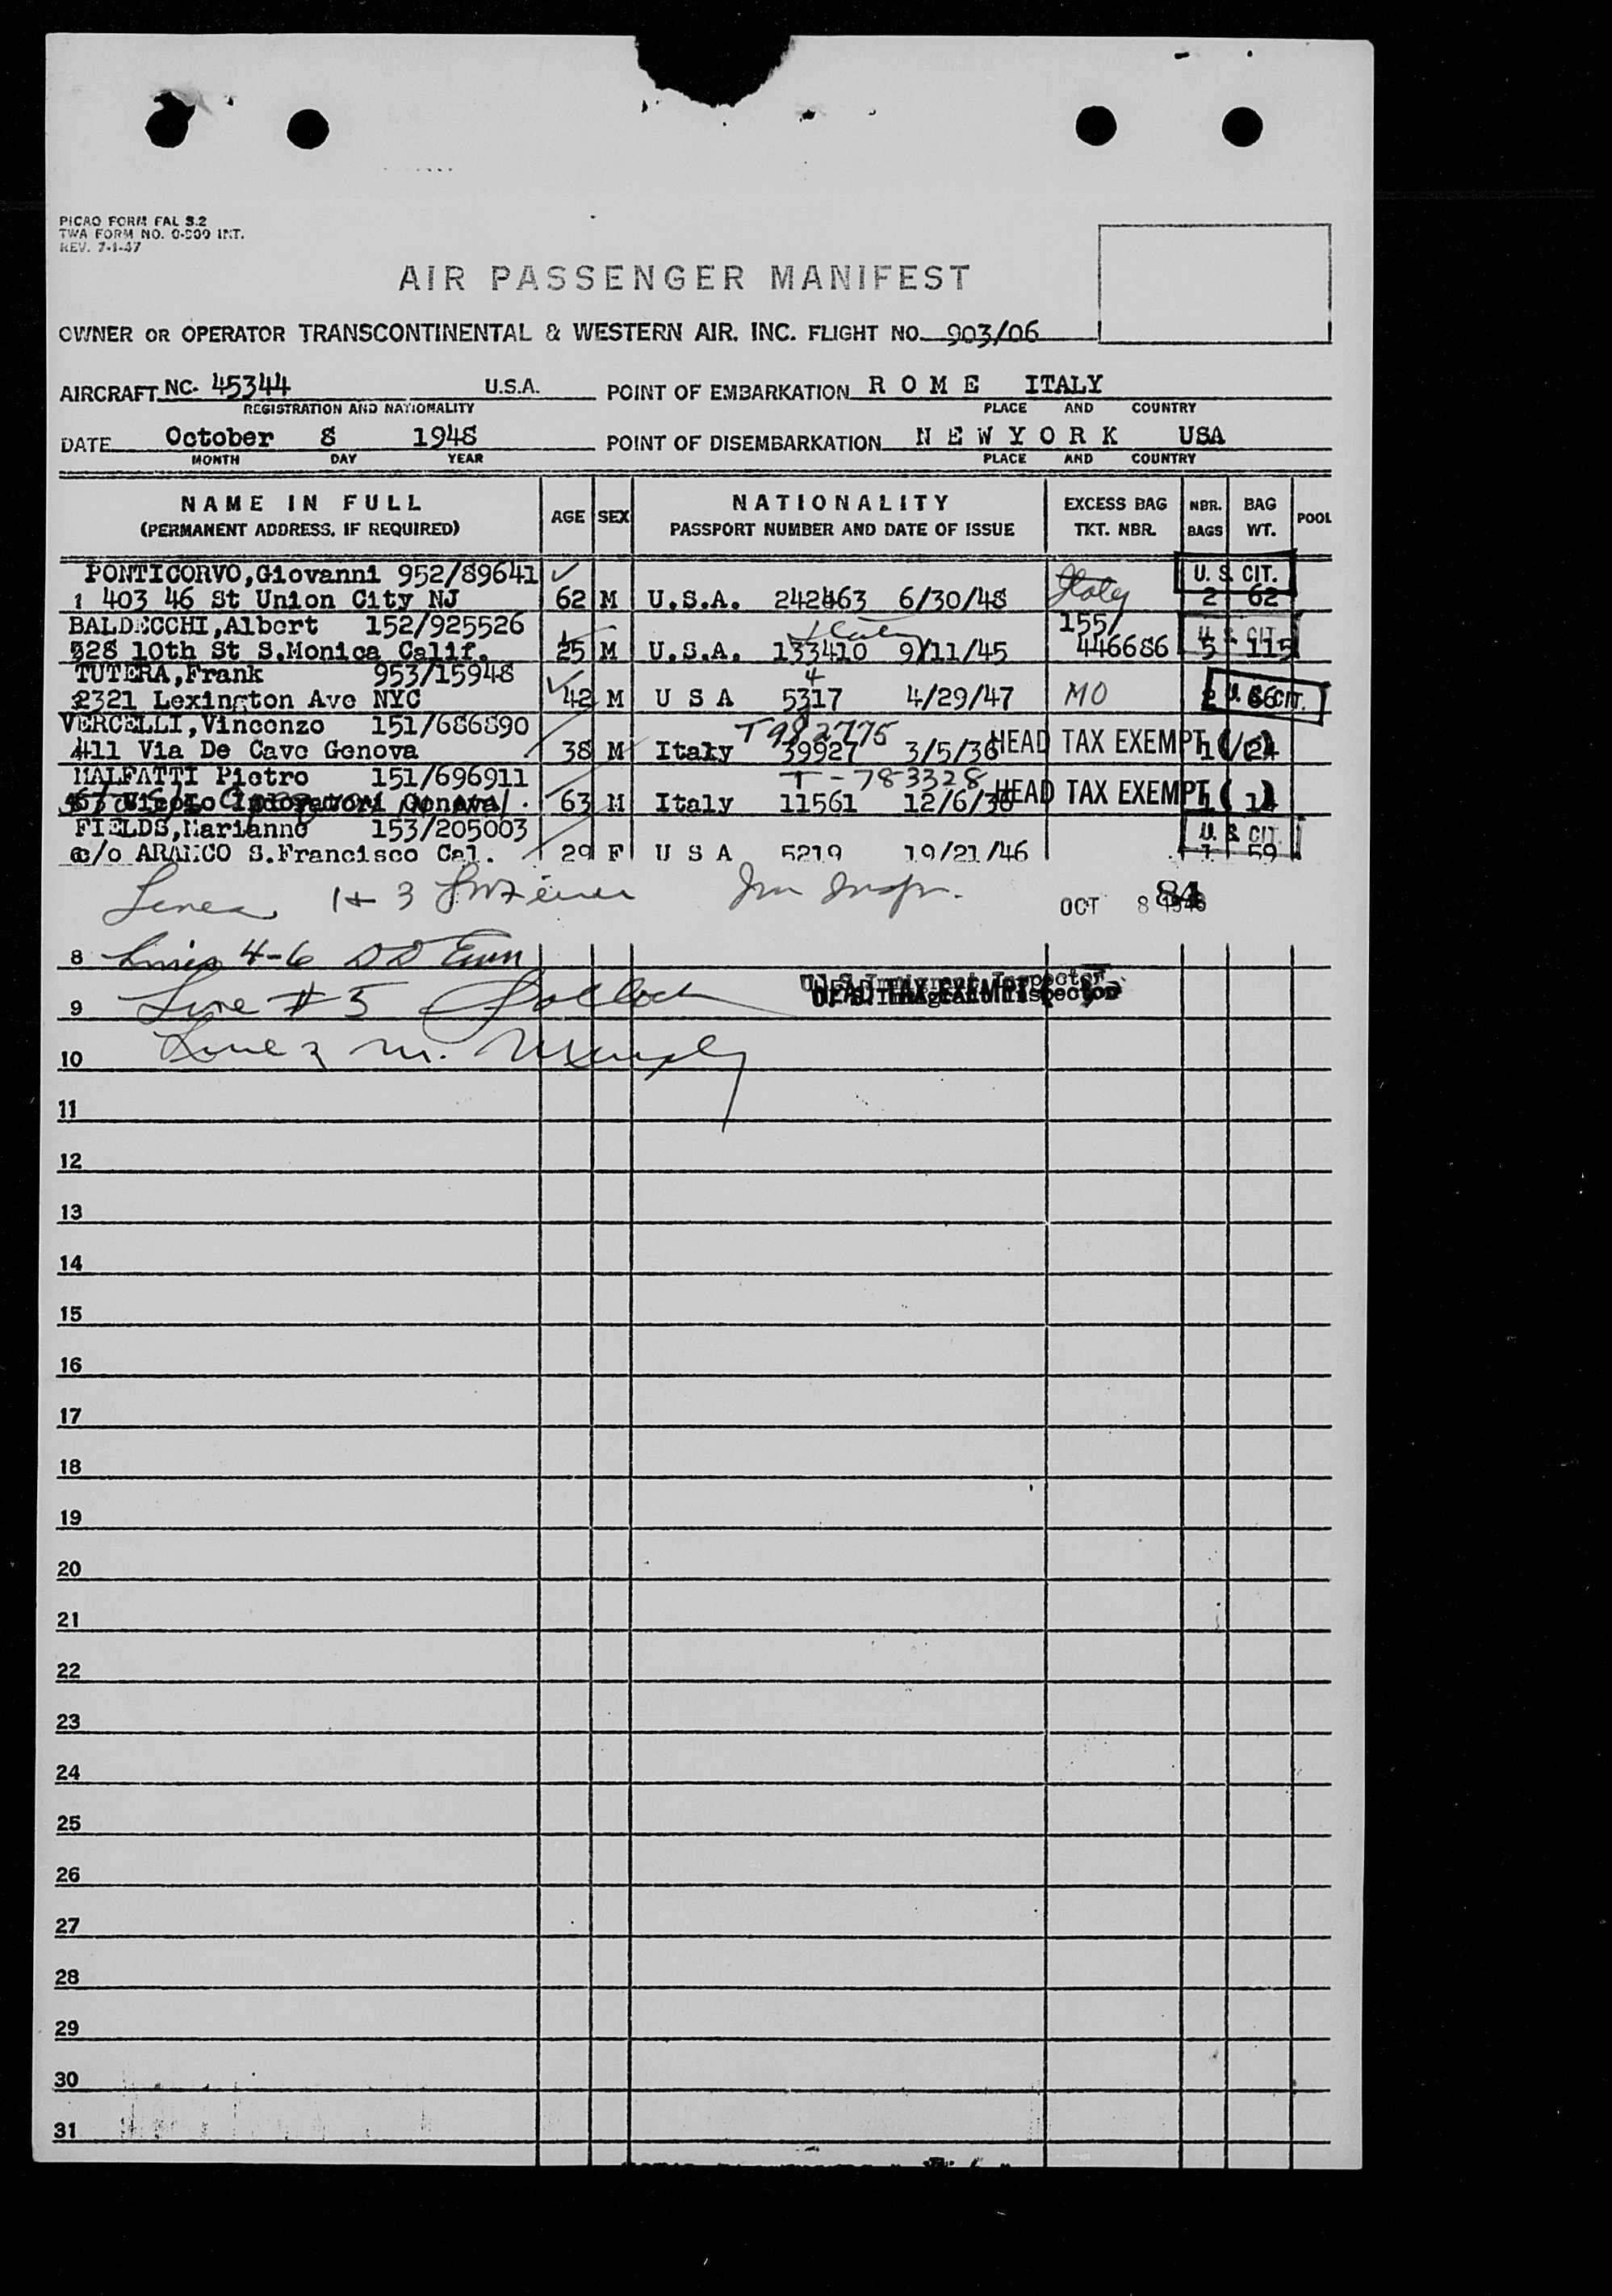 PICAO FORM FAL S.2
TWA FORM NO. 0-800 INT.
REV. 7-1-47
AIR PASSENGER MANIFEST
OWNER OR OPERATOR TRANSCONTINENTAL & WESTERN AIR. INC. FLIGHT NO. 903/06
AIRCRAFT NC- 45344 U.S.A. POINT OF EMBARKATION R O M E ITALY
REGISTRATION AND NATIONALITY PLACE AND COUNTRY
DATE October 8 1948 POINT OF DISEMBARKATION N E W Y O R K USA
MONTH DAY YEAR PLACE AND COUNTRY
NAME IN FULL AGE SEX NATIONALITY EXCESS BAG NBR. BAG POOL
(PERMANENT ADDRESS, IF REQUIRED) PASSPORT NUMBER AND DATE OF ISSUE TKT. NBR. BAGS WT.
PONTICORVO,Giovanni 952/89641 U.S. CIT.
1 403 46 St Union City NJ 62 M U.S.A. 242863 6/30/48 Italy 2 62
BALDECCHI,Albert 152/925526 Italy 155/ U.S. CIT.
528 10th St S.Monica Calif. 25 M U.S.A. 133410 9/11/45 446686 5 115
TUTERA,Frank 953/15948 4
2321 Lexington Ave NYC 42 M U S A 5317 4/29/47 MO 2 66 U.S. CIT.
VERCELLI,Vincenzo 151/686890 T982775
411 Via De Cave Genova 38 M Italy 39927 3/5/36 HEAD TAX EXEMPT 1 24
MALFATTI Pietro 151/696911 T-783328
Vicolo Indoratori Genova 63 M Italy 11561 12/6/36 HEAD TAX EXEMPT 1 14
FIELDS,Marianne 153/205003 U.S. CIT.
c/o ARAMCO S.Francisco Cal. 29 F U S A 5219 19/21/46 1 59
Lines 1 & 3 Imm Inspr.
OCT 8 1948 84
8 Lines 4-6
U.S. Immigrant Inspector
HEAD TAX EXEMPT
9 Line # 5 Pollock
10 Line 2 M. Murphy
11
12
13
14
15
16
17
18
19
20
21
22
23
24
25
26
27
28
29
30
31